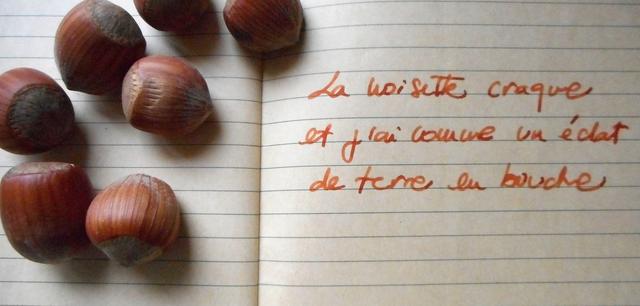 La noisette craque
et j'ai comme un éclat
de terre en bouche